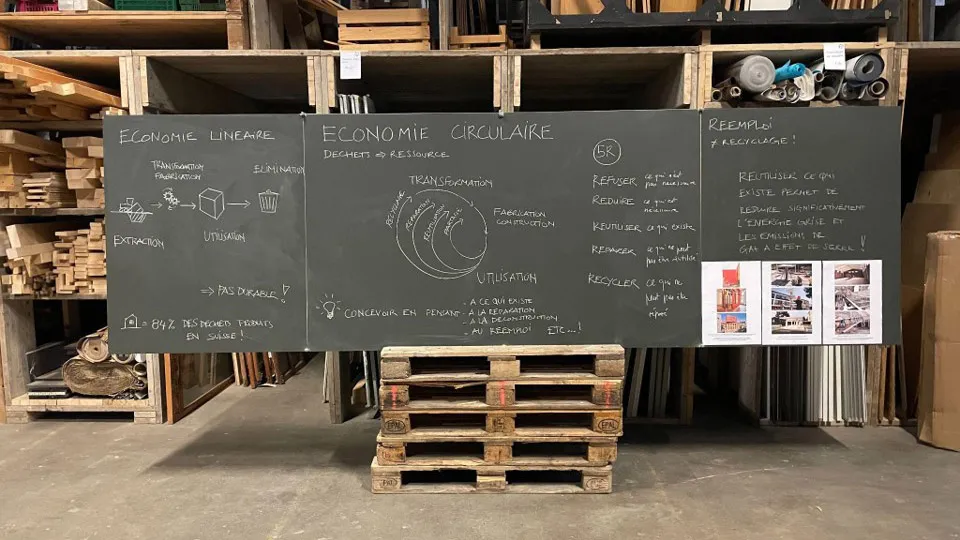 ECONOMIE LINEAIRE
TRANSFORMATION
FABRICATION
ELIMINATION
EXTRACTION
UTILISATION
⇒ PAS DURABLE!
= 84% DES DÉCHETS PRODUITS
EN SUISSE!
ECONOMIE CIRCULAIRE
DECHETS ⇒ RESSOURCE
TRANSFORMATION
FABRICATION
CONSTRUCTION
UTILISATION
RECYCLAGE
CONCEVOIR EN PENSANT
- A CE QUI EXISTE
- A LA REPARATION
- A LA DECONSTRUCTION
- AU REEMPLOI ETC...!
5R
REFUSER ce qui n'est
pas nécessaire
REDUIRE ce qui est
nécessaire
REUTILISER ce qui existe
REPARER ce qui ne peut
pas être réutilisé
RECYCLER ce qui ne
peut pas être
réparé
REEMPLOI
≠ RECYCLAGE!
REUTILISER CE QUI
EXISTE PERMET DE
REDUIRE SIGNIFICATIVEMENT
L'ENERGIE GRISE ET
LES EMISSIONS DE
GAZ A EFFET DE SERRE!
EPAL
EPAL